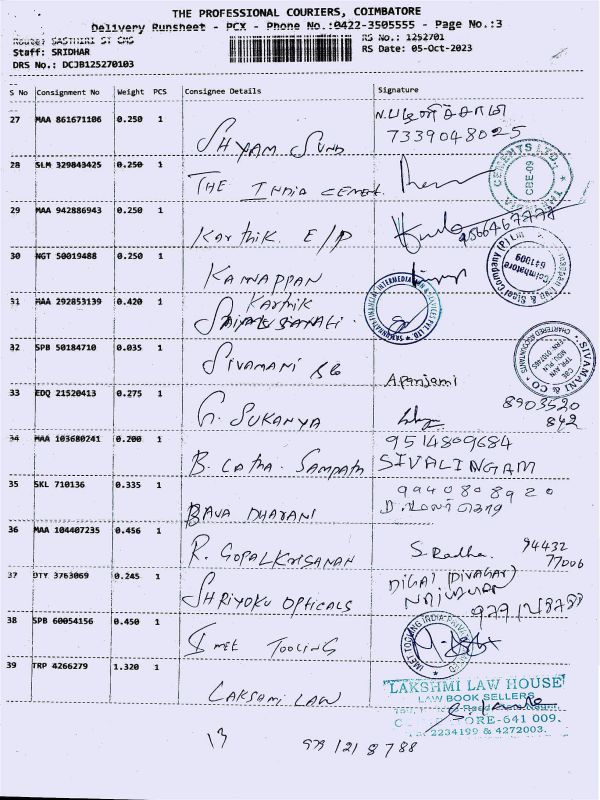 THE PROFESSIONAL COURIERS, COIMBATORE
Delivery Runsheet - PCX - Phone No.:0422-3505555 - Page No.:3
Route: SASTHIRI ST CMS
RS No.: 1252701
Staff: SRIDHAR
RS Date: 05-Oct-2023
DRS No.: DCJB125270103
S No Consignment No Weight PCS Consignee Details Signature
27 MAA 861671106 0.250 1 SHYAM SUND
7339048025
28 SLM 329843425 0.250 1 THE INDIA CEMENT
CEMENTS LTD.
CBE-09
29 MAA 942886943 0.250 1 Karthik E/P
9566467778
30 NGT 50019488 0.250 1 KANNAPPAN
Steel Company (P) Ltd
Coimbatore
641009
31 MAA 292853139 0.420 1 Karthik
32 SPB 50184710 0.035 1 SIVAMANI &Co
SIVAMANI & CO.
CHARTERED ACCOUNTANTS
33 EDQ 21520413 0.275 1 G. SUKANYA
8903520
842
34 MAA 103680241 0.200 1 B. Latha. Sampath
9514809684
SIVALINGAM
35 SKL 710136 0.335 1 BAVA DHARANI
9940808920
36 MAA 104407235 0.456 1 R. GOPALKRISANAN S. Radha. 94432
77006
37 DTY 3763069 0.245 1 SHRIYOKU OPTICALS
(DIVAGAR)
9791218788
38 SPB 60054156 0.450 1 IMET TOOLING
IMET TOOLING INDIA PRIVATE LIMITED
39 TRP 4266279 1.320 1 LAKSHMI LAW
LAKSHMI LAW HOUSE
LAW BOOK SELLERS
ORE-641 009.
2234199 & 4272003.
13 979 121 8 788